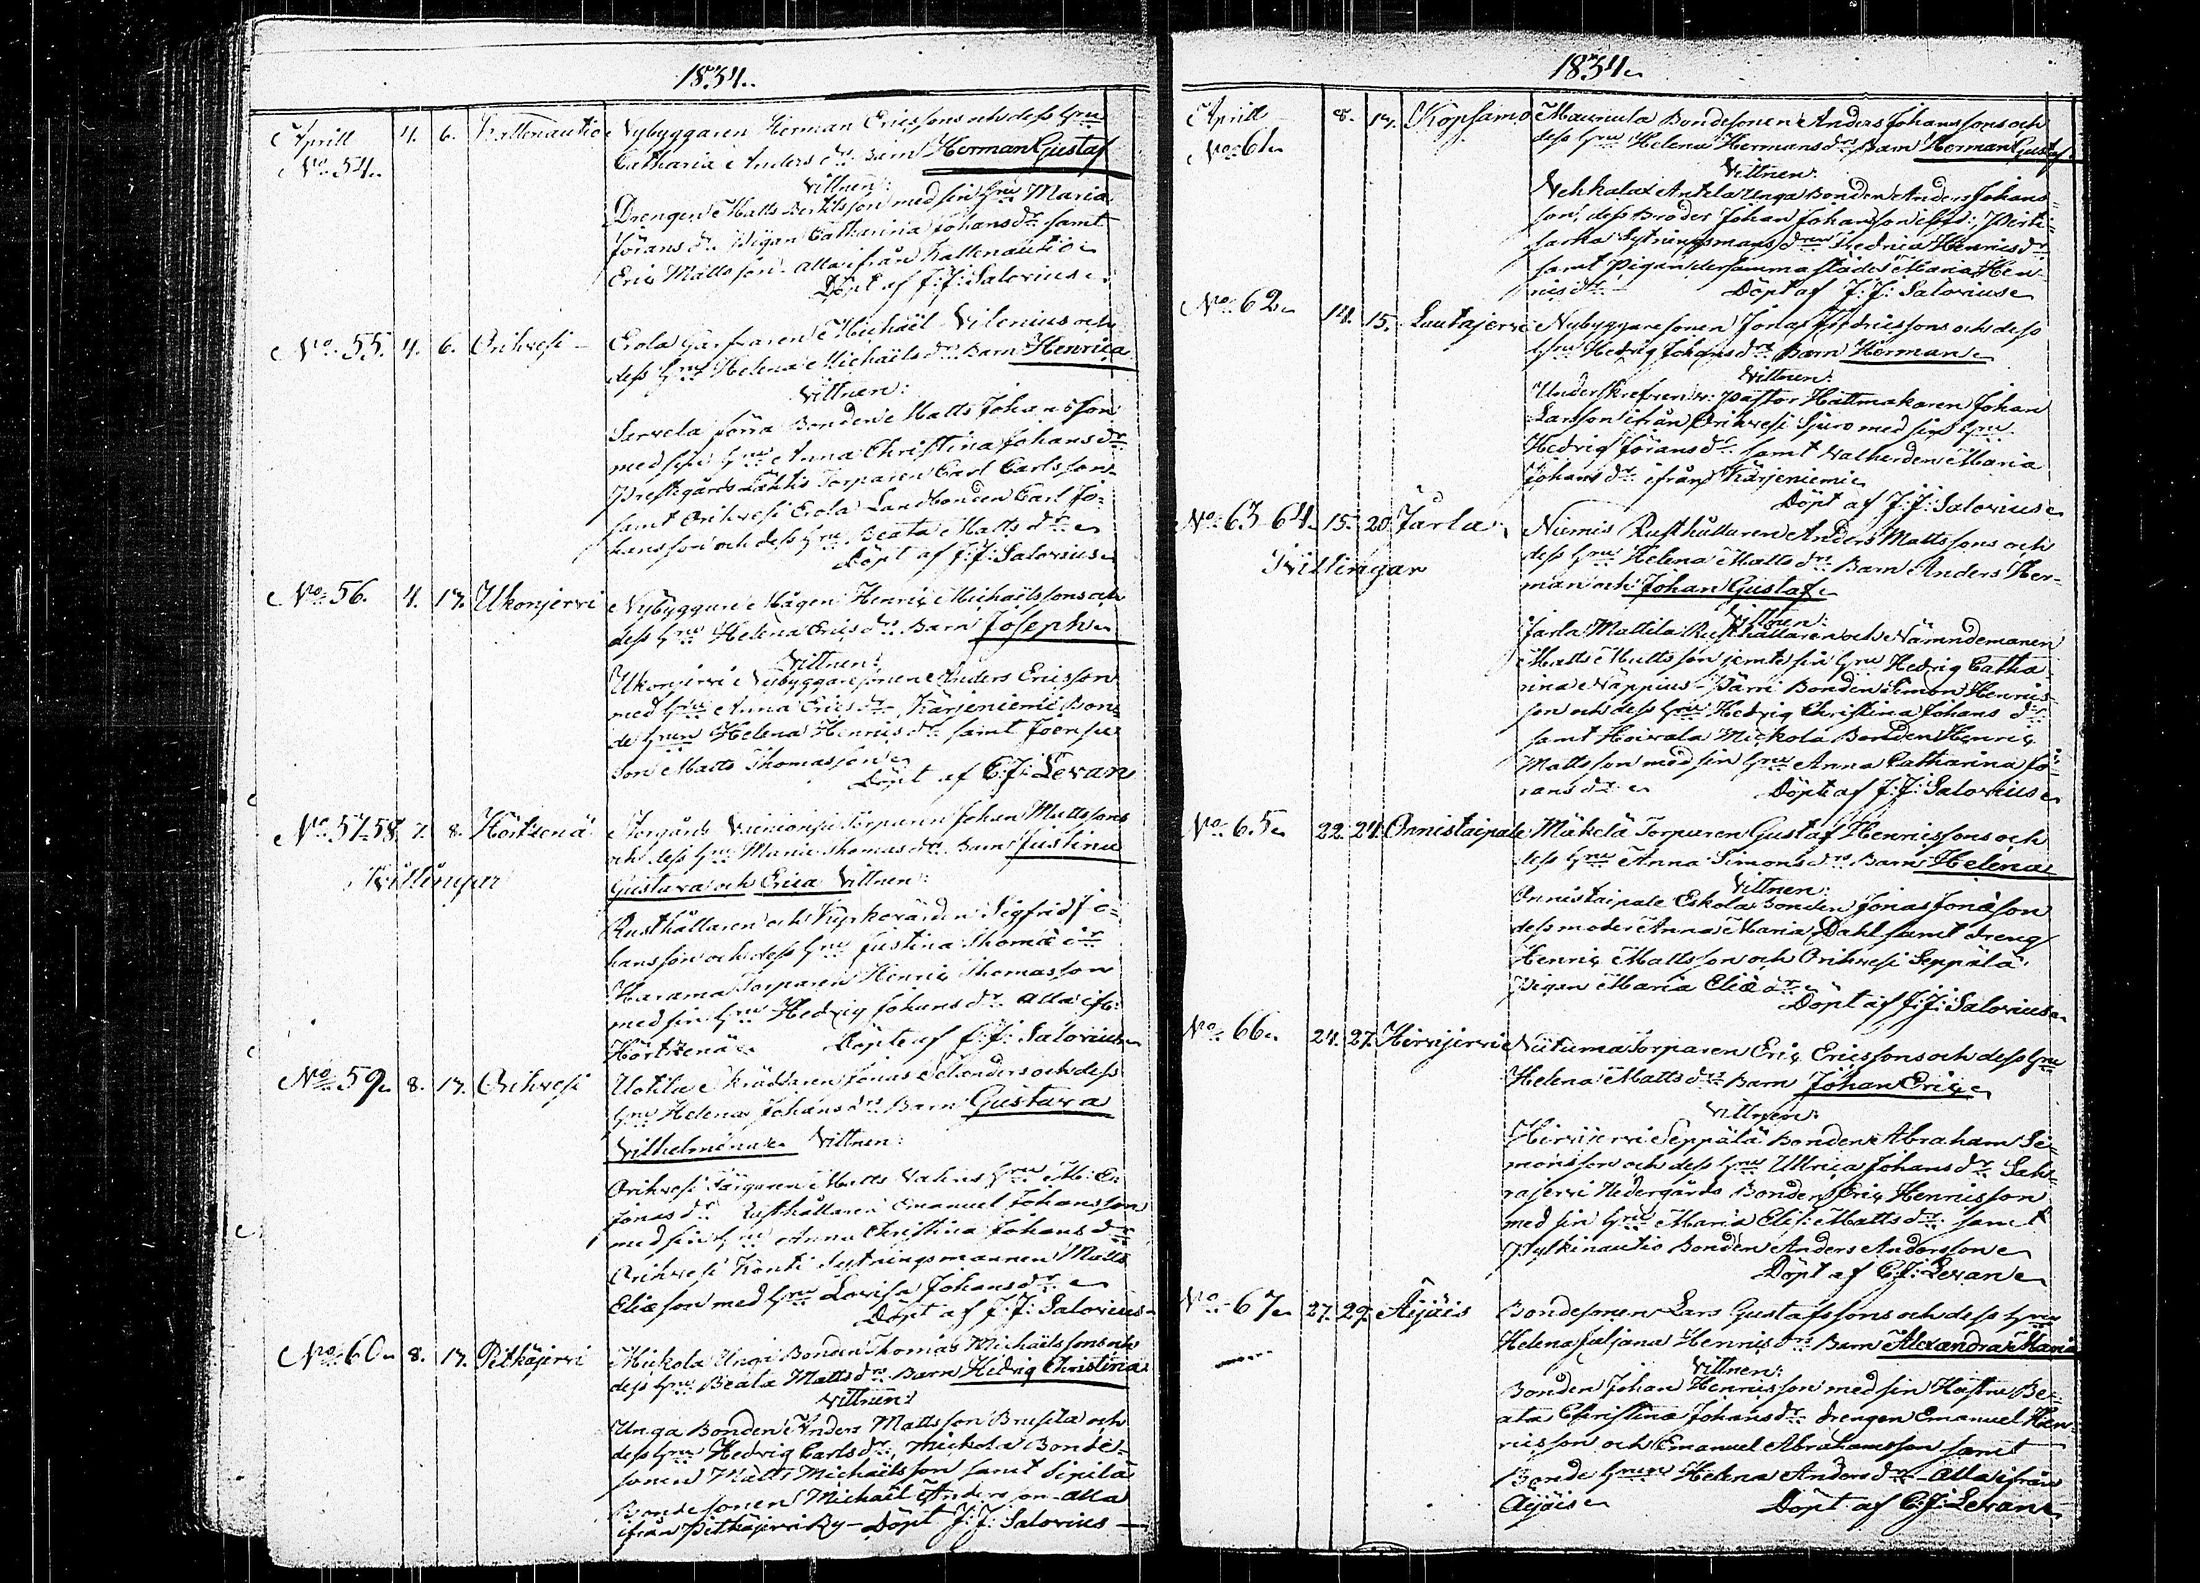 1834.
Aprill 4. 6. Kattenautio Nybyggaren Herman Ericssons och dess hru
No 54. Catharia Anders dr Barn Herman Gustaf
Vittnen:
Drengen Matts Bertilsson med sin hru Maria
Jörans dr Pigan Catharina Johans dr samt
Eric Mattsson. Alla ifrån Kattenautio
Döpt af J: J: Salovius
No 55. 4. 6. Orihvesi Erola Garfvaren Michaël Vilenius och
dess hru Helena Michaëls dr Barn Henrica
Vittnen:
Servela förra Bonden Matts Johansson
med sin hru Anna Christina Johans dr
Prestgårds Torparen Carl Carlsson
samt Orihvesi Erola Landbonden Carl Jo-
hansson och dess hru Beata Matts dr
Döpt af J: J: Salovius
No 56. 4. 17. Ukonjervi Nybyggare Mågen Henric Michaëlssons och
dess hru Helena Erics dr Barn Joseph
Vittnen:
Ukonjervi Nybyggaresonen Anders Ericsson
med hru Anna Erics dr Kärjeniemi Bon-
de hrun Helena Henrics dr samt
son Matts Thomasson
Döpt af C: J: Levan
No 57-58. 7. 8. Hörtsenä Storgårds Torparen Johan Mattssons
och dess hru Maria Thomas dr Barn Justina
Tvillingar Gustava och Erica Vittnen:
Rusthållaren och Kyrkovärden Sigfrid Jo-
hansson och dess hru Justina Thomæ dr
Harama Torparen Henric Thomasson
med sin hru Hedvig Johans dr alla ifr:
Hörtsenä Döpte af J: J: Salovius
No 59. 8. 17. Orihvesi Uotila Skräddaren Jonas Selanders och dess
hru Helena Johans dr Barn Gustava
Vilhelmina Vittnen:
Orihvesi Färgaren Matts Valins hru M: Ch:
Jonas dr Rusthållaren Emanuel Johansson
med sin hru Anna Christina Johans dr
Orihvesi Konti Sytningsmannen Matts
Eliæson med hru Lovisa Johans dr
Döpt af J: J: Salovius
No 60. 8. 17. Pitkäjervi Mickola Unga Bonden Thomas Michaëlssons och
dess hru Beata Matts dr Barn Hedvig Christina
Vittnen:
Unga Bonden Anders Mattsson Brusila och
dess hru Hedvig Carls dr, Mickola Bonde-
sonen Matts Michaëlsson samt Sipilä
Bondesonen Michaël Andersson alla
ifrån Pitkäjervi By - Döpt J: J: Salovius
1834.
Aprill 8. 17. Kopsamo Maunula Bondesonen Anders Johanssons och
No 61. dess hru Helena Hermans dr Barn Herman Gustaf
Vittnen:
Vehkalax Antila Unga Bonden Anders Johans-
son, dess Broder Johan Johansson
Sytningsmans dren Hedvig Henrics dr
samt Pigan dersammastädes Maria Hen-
rics dr Döpt af J: J: Salovius
No 62. 14. 15. Lautajervi Nybyggaresonen Jonas Fredricssons och dess
hru Hedvig Johans dr Barn Herman
Vittnen:
Underskrefven v: Pastor Hattmakaren Johan
Larsson ifrån Orihvesi Sjuro med sin hru
Hedvig Jörans dr samt Vallherden Maria
Johans dr ifrån Kärjeniemi
Döpt af J: J: Salovius
No 63-64. 15. 20. Järla Niemis Rusthållaren Anders Mattssons och
Tvillingar dess hru Helena Matts dr Barn Anders Her-
man och Johan Gustaf
Vittnen:
Järla Mattila Rusthållaren och Nämndemannen
Matts Mattsson jemte sin hru Hedvig Catha-
rina Näppius - Pärri Bonden Simon Henrics-
son och dess hru Hedvig Christina Johans dr
samt Hoivala Mickola Bonden Henric
Mattsson med sin hru Anna Catharina Jö-
rans dr Döpte af J: J: Salovius
No 65. 22. 24. Onnistaipale Mäkelä Torparen Gustaf Henricssons och
dess hru Anna Simons dr Barn Helena
Vittnen:
Onnistaipale Eskola Bonden Jonas Jonæson
dess moder Anna Maria Dahl samt dreng
Henric Mattsson och Orihvesi Seppälä
Pigan Maria Eliæ dr
Döpt af J: J: Salovius
No 66. 24. 27. Hirvijervi Niituma Torparen Eric Ericssons och dess hru
Helena Matts dr Barn Johan Eric
Vittnen:
Hirvijervi Seppälä Bonden Abraham Si-
monsson och dess hru Ullrica Johans dr Sak-
rajervi Nedergårds Bonden Eric Henricsson
med sin hru Maria Elis: Matts dr samt
Pylkinautio Bonden Anders Andersson
Döpt af C: J: Levan
No 67. 27. 29. Äijäis Bondesonen Lars Gustafssons och dess hru
Helena Juliana Henrics dr Barn Alexandra Maria
Vittnen:
Bonden Johan Henricsson med sin Hustru Be-
ata Christina Johans dr drengen Emanuel Hen-
ricsson och Emanuel Abrahamsson samt
Bonde hrun Helena Anders dr - Alla ifrån
Äijäis Döpt af C: J: Levan